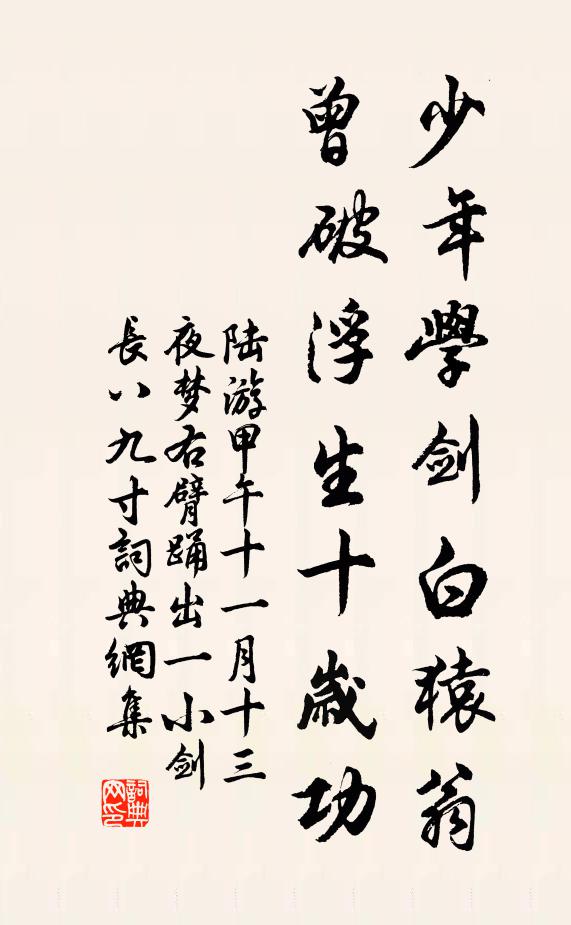 少年學劍白猿翁
曾破浮生十歲功
陆游甲午十一月十三
夜梦右臂踊出一小劍
長八九寸詞典網集
詞典
网印